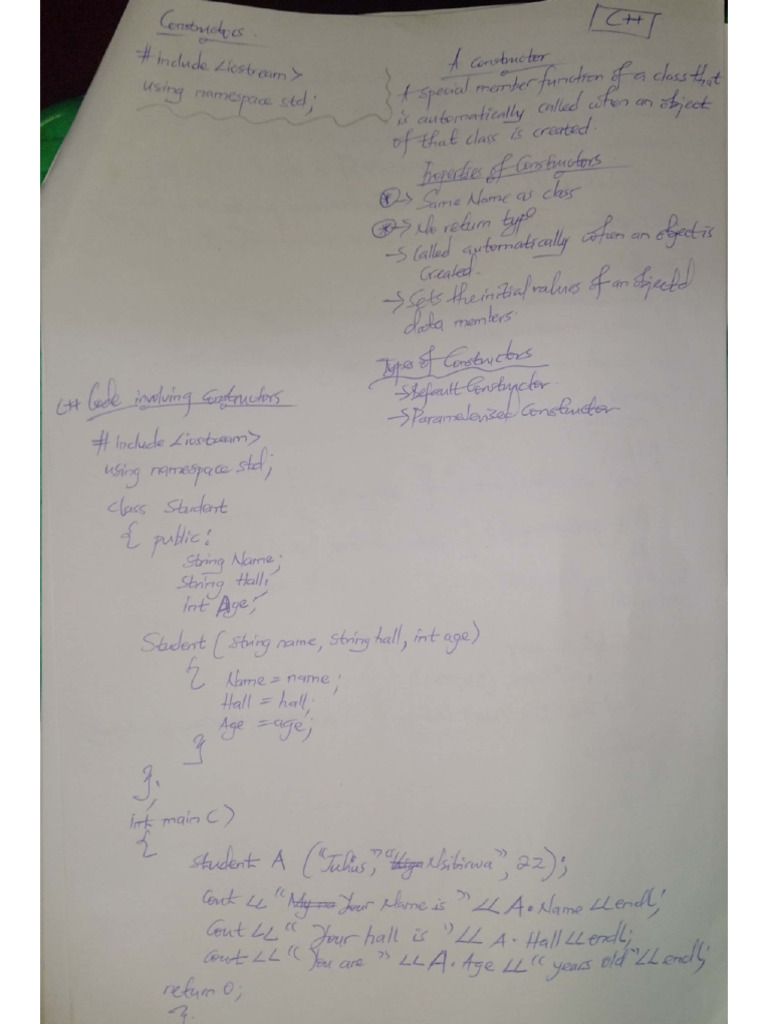 Constructors.
#include <iostream>
using namespace std;
C++
A constructor
A special member function of a class that
is automatically called when an object
of that class is created.
Properties of Constructors
→ Same Name as class
→ No return type
→ Called automatically when an object is
created.
→ Sets the initial values of an object
data members.
Types of Constructors
→ Default Constructor
→ Parameterized Constructor
C++ Code involving Constructors
#include <iostream>
using namespace std;
class Student
{ public:
String Name;
String Hall;
int Age;
Student (String name, String hall, int age)
{ Name = name;
Hall = hall;
Age = age;
}
};
int main ()
{
student A ("Julius", "Nsibirwa", 22);
Cout << "Your Name is " << A.Name << endl;
Cout << " Your hall is " << A.Hall << endl;
Cout << " You are " << A.Age << " years old" << endl;
return 0;
}